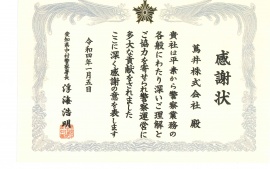 感謝状
蔦井株式会社 殿
貴社は平素から警察業務の
各般にわたり深いご理解と
ご協力を寄せられ警察運営に
多大な貢献をされました
ここに深く感謝の意を表します
令和四年一月五日
愛知県中村警察署長
浩明